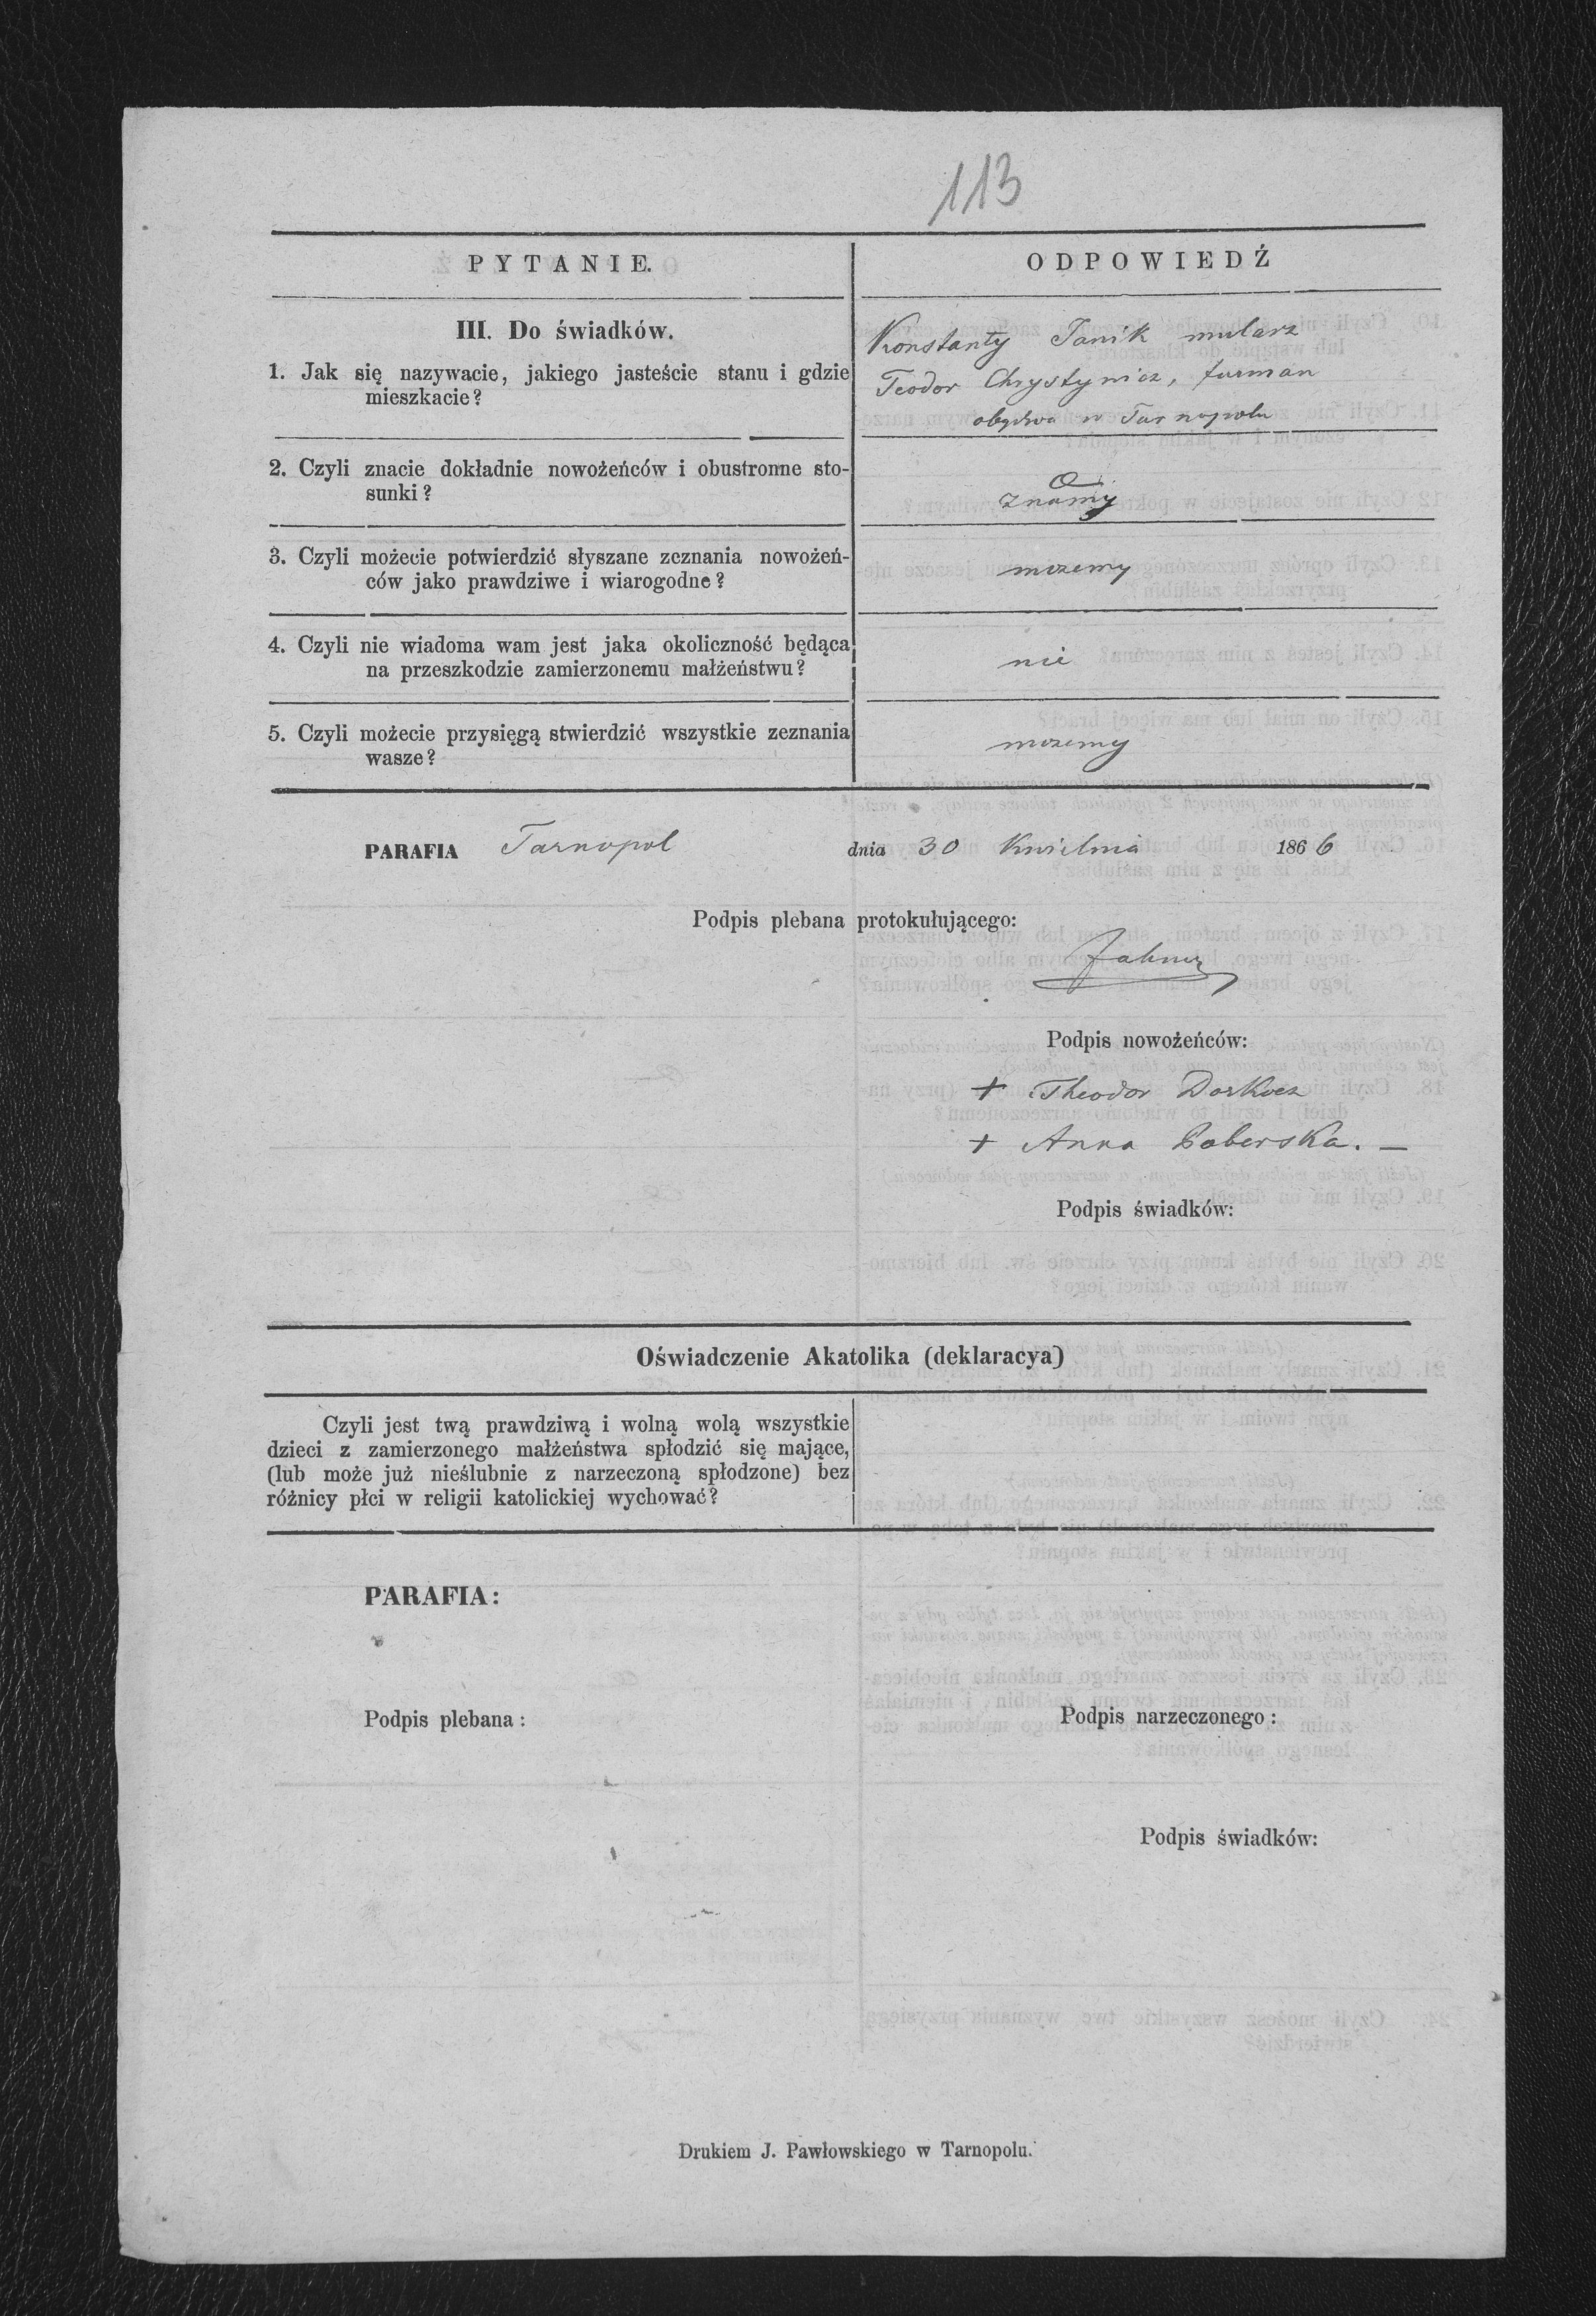 113
PYTANIE.
ODPOWIEDŹ
III. Do świadków.
1. Jak się nazywacie, jakiego jasteście stanu i gdzie
mieszkacie?
Konstanty Janik mularz
Teodor Chrystynicz, furman
obydwa w Tarnopolu
2. Czyli znacie dokładnie nowożeńców i obustronne sto-
sunki?
znamy
3. Czyli możecie potwierdzić słyszane zeznania nowożeń-
ców jako prawdziwe i wiarogodne?
mozemy
4. Czyli nie wiadoma wam jest jaka okoliczność będąca
na przeszkodzie zamierzonemu małżeństwu?
nie
5. Czyli możecie przysięgą stwierdzić wszystkie zeznania
wasze?
mozemy
PARAFIA Tarnopol dnia 30 Kwietnia 1866
Podpis plebana protokułującego:
Podpis nowożeńców:
+ Theodor Dorkocz
+ Anna Baberska. —
Podpis świadków:
Oświadczenie Akatolika (deklaracya)
Czyli jest twą prawdziwą i wolną wolą wszystkie
dzieci z zamierzonego małżeństwa spłodzić się mające,
(lub może już nieślubnie z narzeczoną spłodzone) bez
różnicy płci w religii katolickiej wychować?
PARAFIA:
Podpis plebana:
Podpis narzeczonego:
Podpis świadków:
Drukiem J. Pawłowskiego w Tarnopolu.